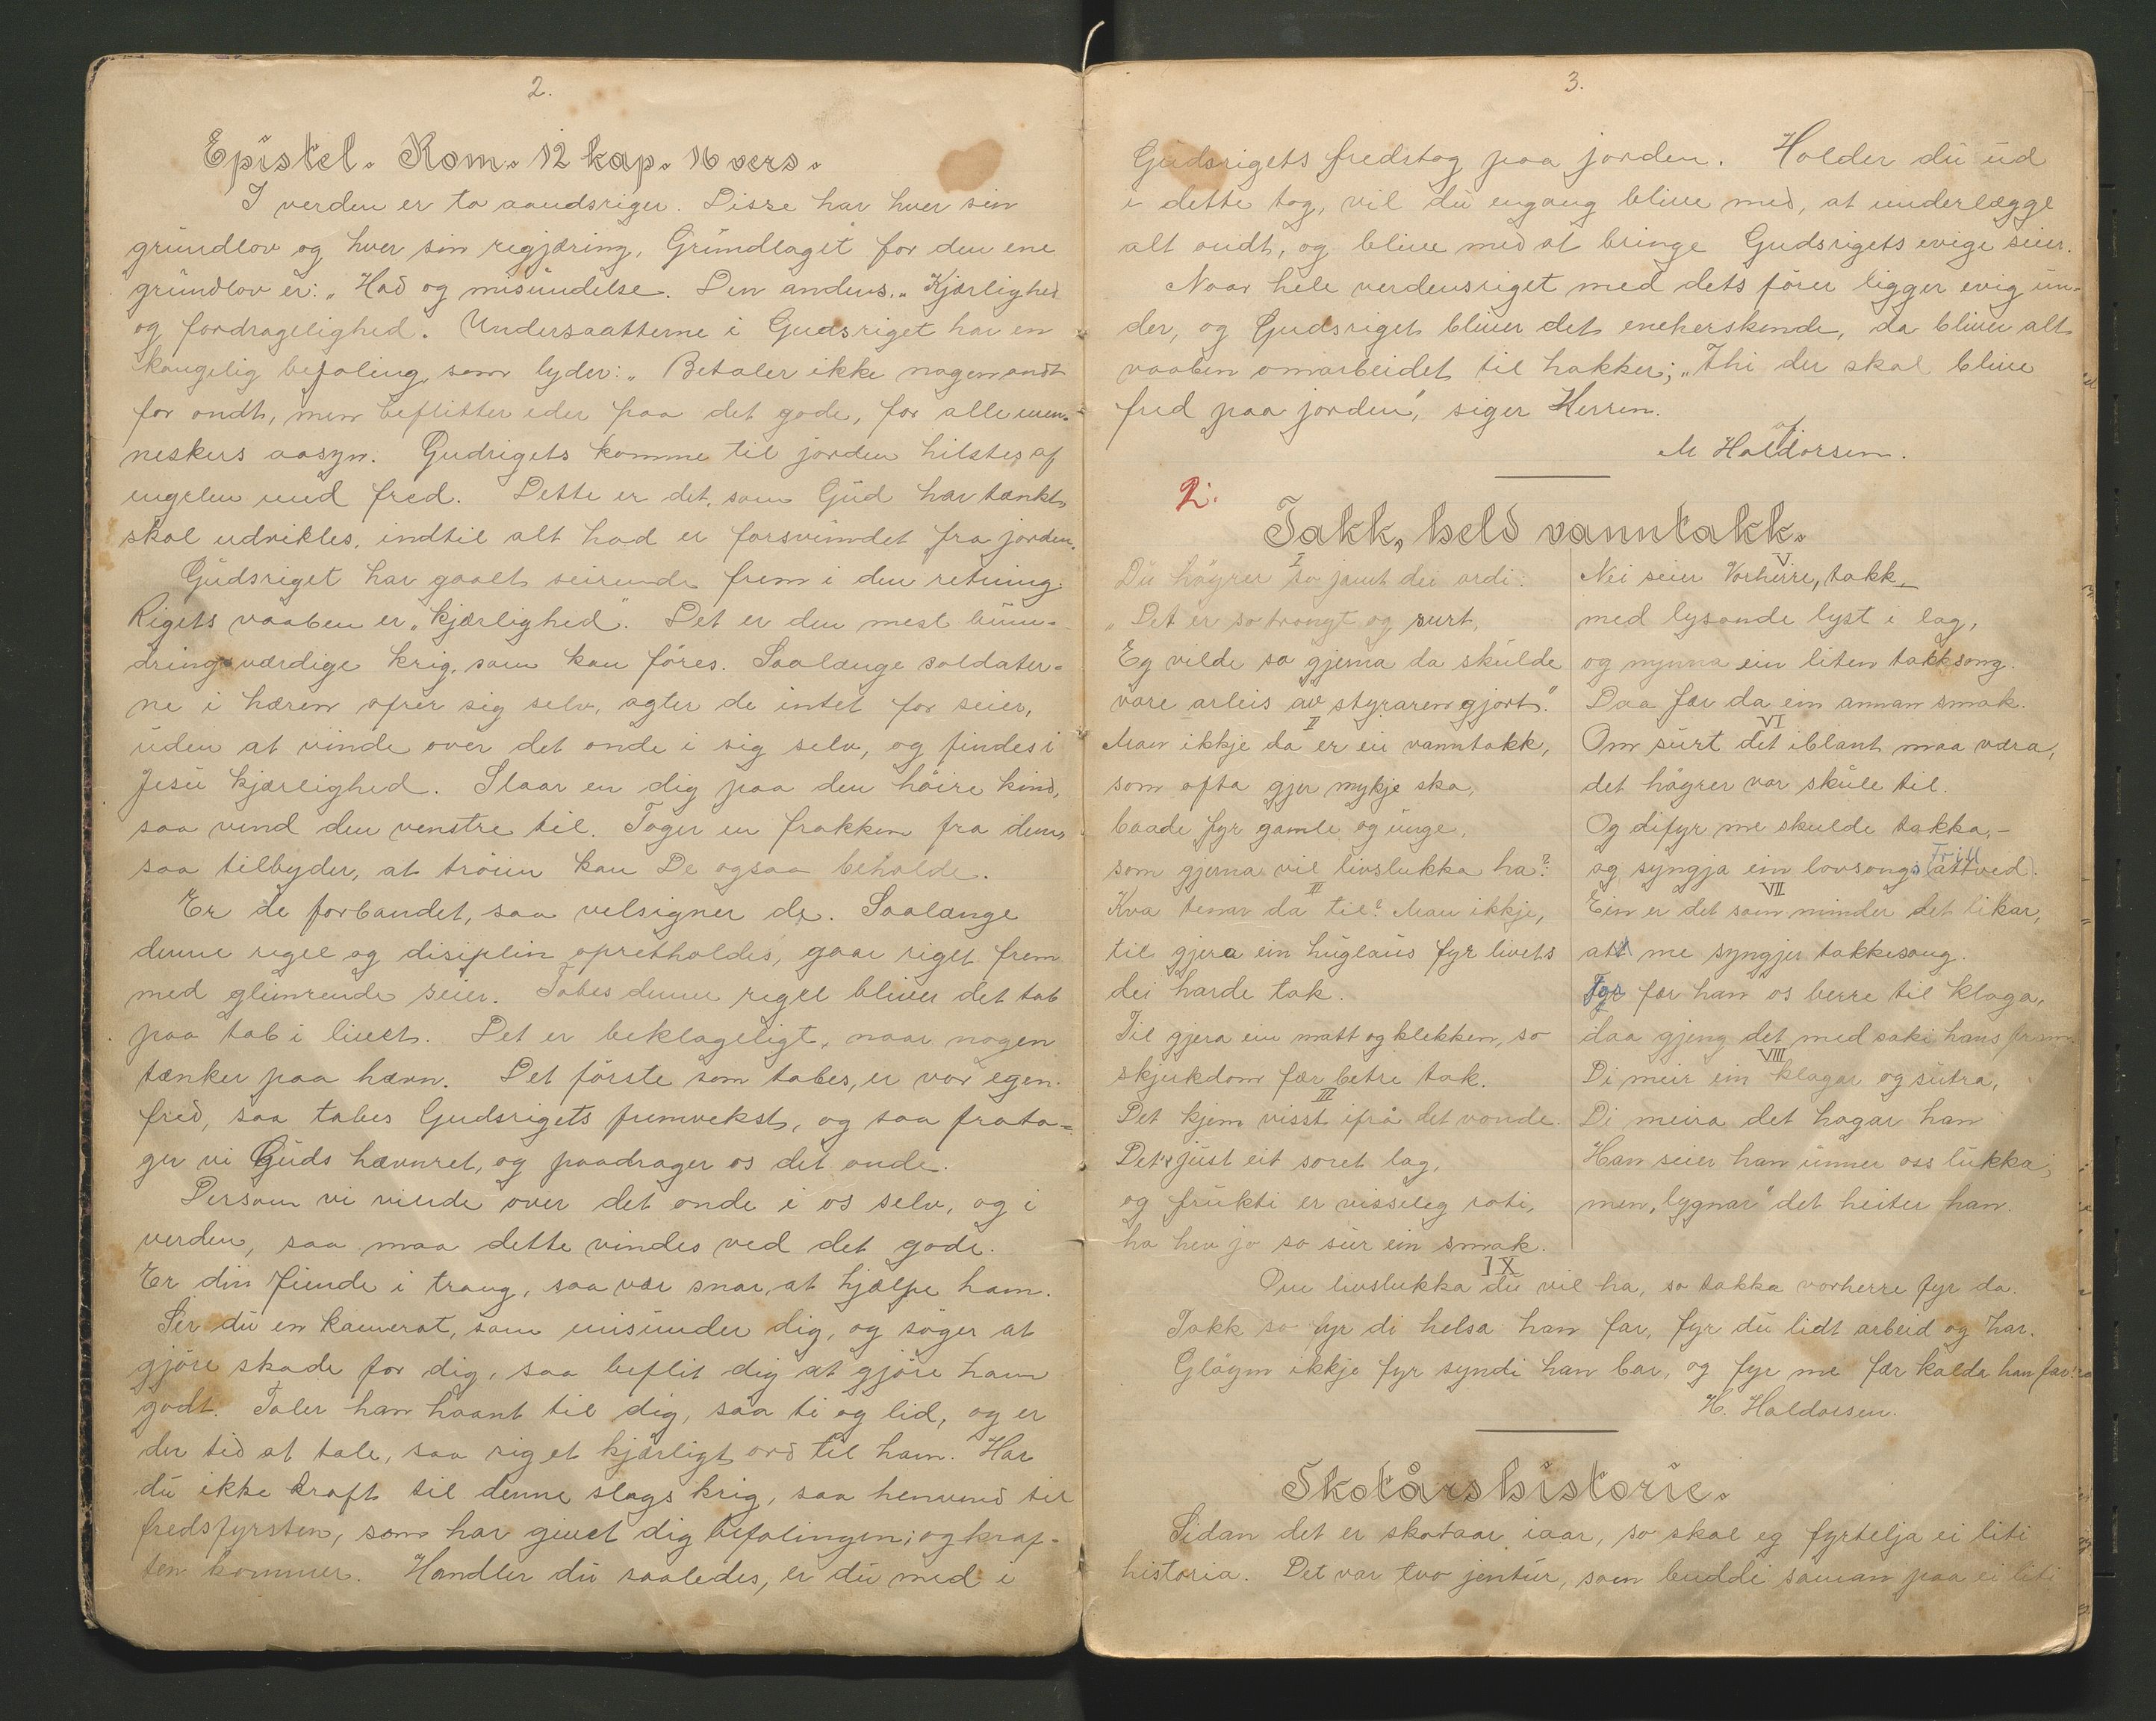 2.
Epistel. Rom. 12 kap. 16 vers.
I verden er to aandsriger. Disse har hver sin
grundlov og hver sin regjæring. Grundlaget for den ene
grundlov er: „Had og misundelse. Den andens „Kjærlighed
og fordragelighed. Undersaatterne i Gudsriget har en
kongelig befaling, som lyder: „Betaler ikke nogen ondt
for ondt, men beflitter eder paa det gode, for alle men-
neskers aasyn. Gudrigets komme til jorden hilstes af
engelen med fred. Dette er det, som Gud har tænkt,
skal udvikles, indtil alt had er forsvundet fra jorden.
Gudsriget har gaaet seirende frem i den retning.
Rigets vaaben er „kjærlighed". Det er den mest bŭun-
dringsværdige krig, som kan føres. Saalænge soldater-
ne i hæren ofrer sig selv, agter de intet for seier,
uden at vinde over det onde i sig selv, og findes i
Jesu kjærlighed. Slaar en dig paa den höire kind,
saa vend den venstre til. Tager en frakken fra dem,
saa tilbyder, at tröien kan De ogsaa beholde.
Er de forbandet, saa velsigner de. Saalænge
denne regel og disiplin opretholdes, gaar riget frem
med glimrende seier. Tabes denne regel bliver det tab
paa tab i livet. Det er beklageligt, naar nogen
tænker paa hævn. Det förste som tabes, er vor egen
fred, saa tabes Gudsrigets fremvekst, og saa frata-
ger vi Guds hævnret, og paadrager os det onde.
Dersom vi vinde over det onde i os selv, og i
verden, saa maa dette vindes ved det gode.
Er din fiende i trang, saa vær snar, at hjælpe ham.
Ser du en kamerat, som misunder dig, og söger at
gjöre skade for dig, saa beflit dig at gjöre ham
godt. Taler han haant til dig, saa ti og lid, og er
der tid at tale, saa sig et kjærligt ord til ham. Har
du ikke kraft til denne slags krig, saa henvend til
fredsfyrsten, som har givet dig befalingen; og kraf-
ten kommer. Handler du saaledes, er du med i
3.
Gudsrigets fredstog paa jorden. Holder du ud
i dette tog, vil du engang blive med, at underlægge
alt ondt, og blive med at bringe Gudsrigets evige seier.
Naar hele verdensriget med dets förer ligger evig un-
der, og Gudsriget bliver det eneherskende, da bliver alt
vaaben omarbeidet til hakker; „Thi der skal blive
fred paa jorden", siger Herren.
af
M Haldorsen.
2.
Takk, held vanntakk.
I
Du högrer so jamt dei ordi:
„Det er so trongt og surt,
Eg vilde so gjerna da skulde
vore arleis av styraren gjort."
II
Man ikkje da er ein vanntakk,
som ofta gjer mykje ska,
baade fyr gamle og unge,
som gjerna vil livslukka ha?
III
Kva tenar da til? Man ikkje,
til gjera ein huglaus fyr livets
dei harde tak.
Til gjera ein matt og klekken, so
skjukdom fær betre tak.
III
Det kjem visst ifrå det vonde.
Det er just eit soret lag,
og frukti er visseleg roti,
ho hev jo so sur ein smak.
V
Nei seier Vorherre, takk,
med lysande lyst i lag,
og nynna ein liten takksong.
Daa fær da ein annan smak.
VI
Om surt det iblant maa væra,
det högrer vor skule til.
Og difyr me skulde takka, –
og syngja ein lovsongs attved. Till
VII
Ein er det som minder det likar,
att me syngjer takkesong.
Fyr fær han os berre til klaga,
daa gjeng det med saki hans fram.
VIII
Di meir ein klagar og sutra,
Di meira det hagar han
Han seier han unner oss lukka,
men, „lygnar" det heiter han.
IX
Om livslukka du vil ha, so takka vorherre fyr da.
Takk so fyr di helsa han far, fyr du lidt arbeid og har.
Glögm ikkje fyr syndi han bar, og fyr me fær kalda han far.
H. Haldorsen.
Skotårshistorie.
Sidan det er skotaar iaar, so skal eg fyrtelja ei liti
historia. Det var tvo jentur, som buddi saman paa ei liti